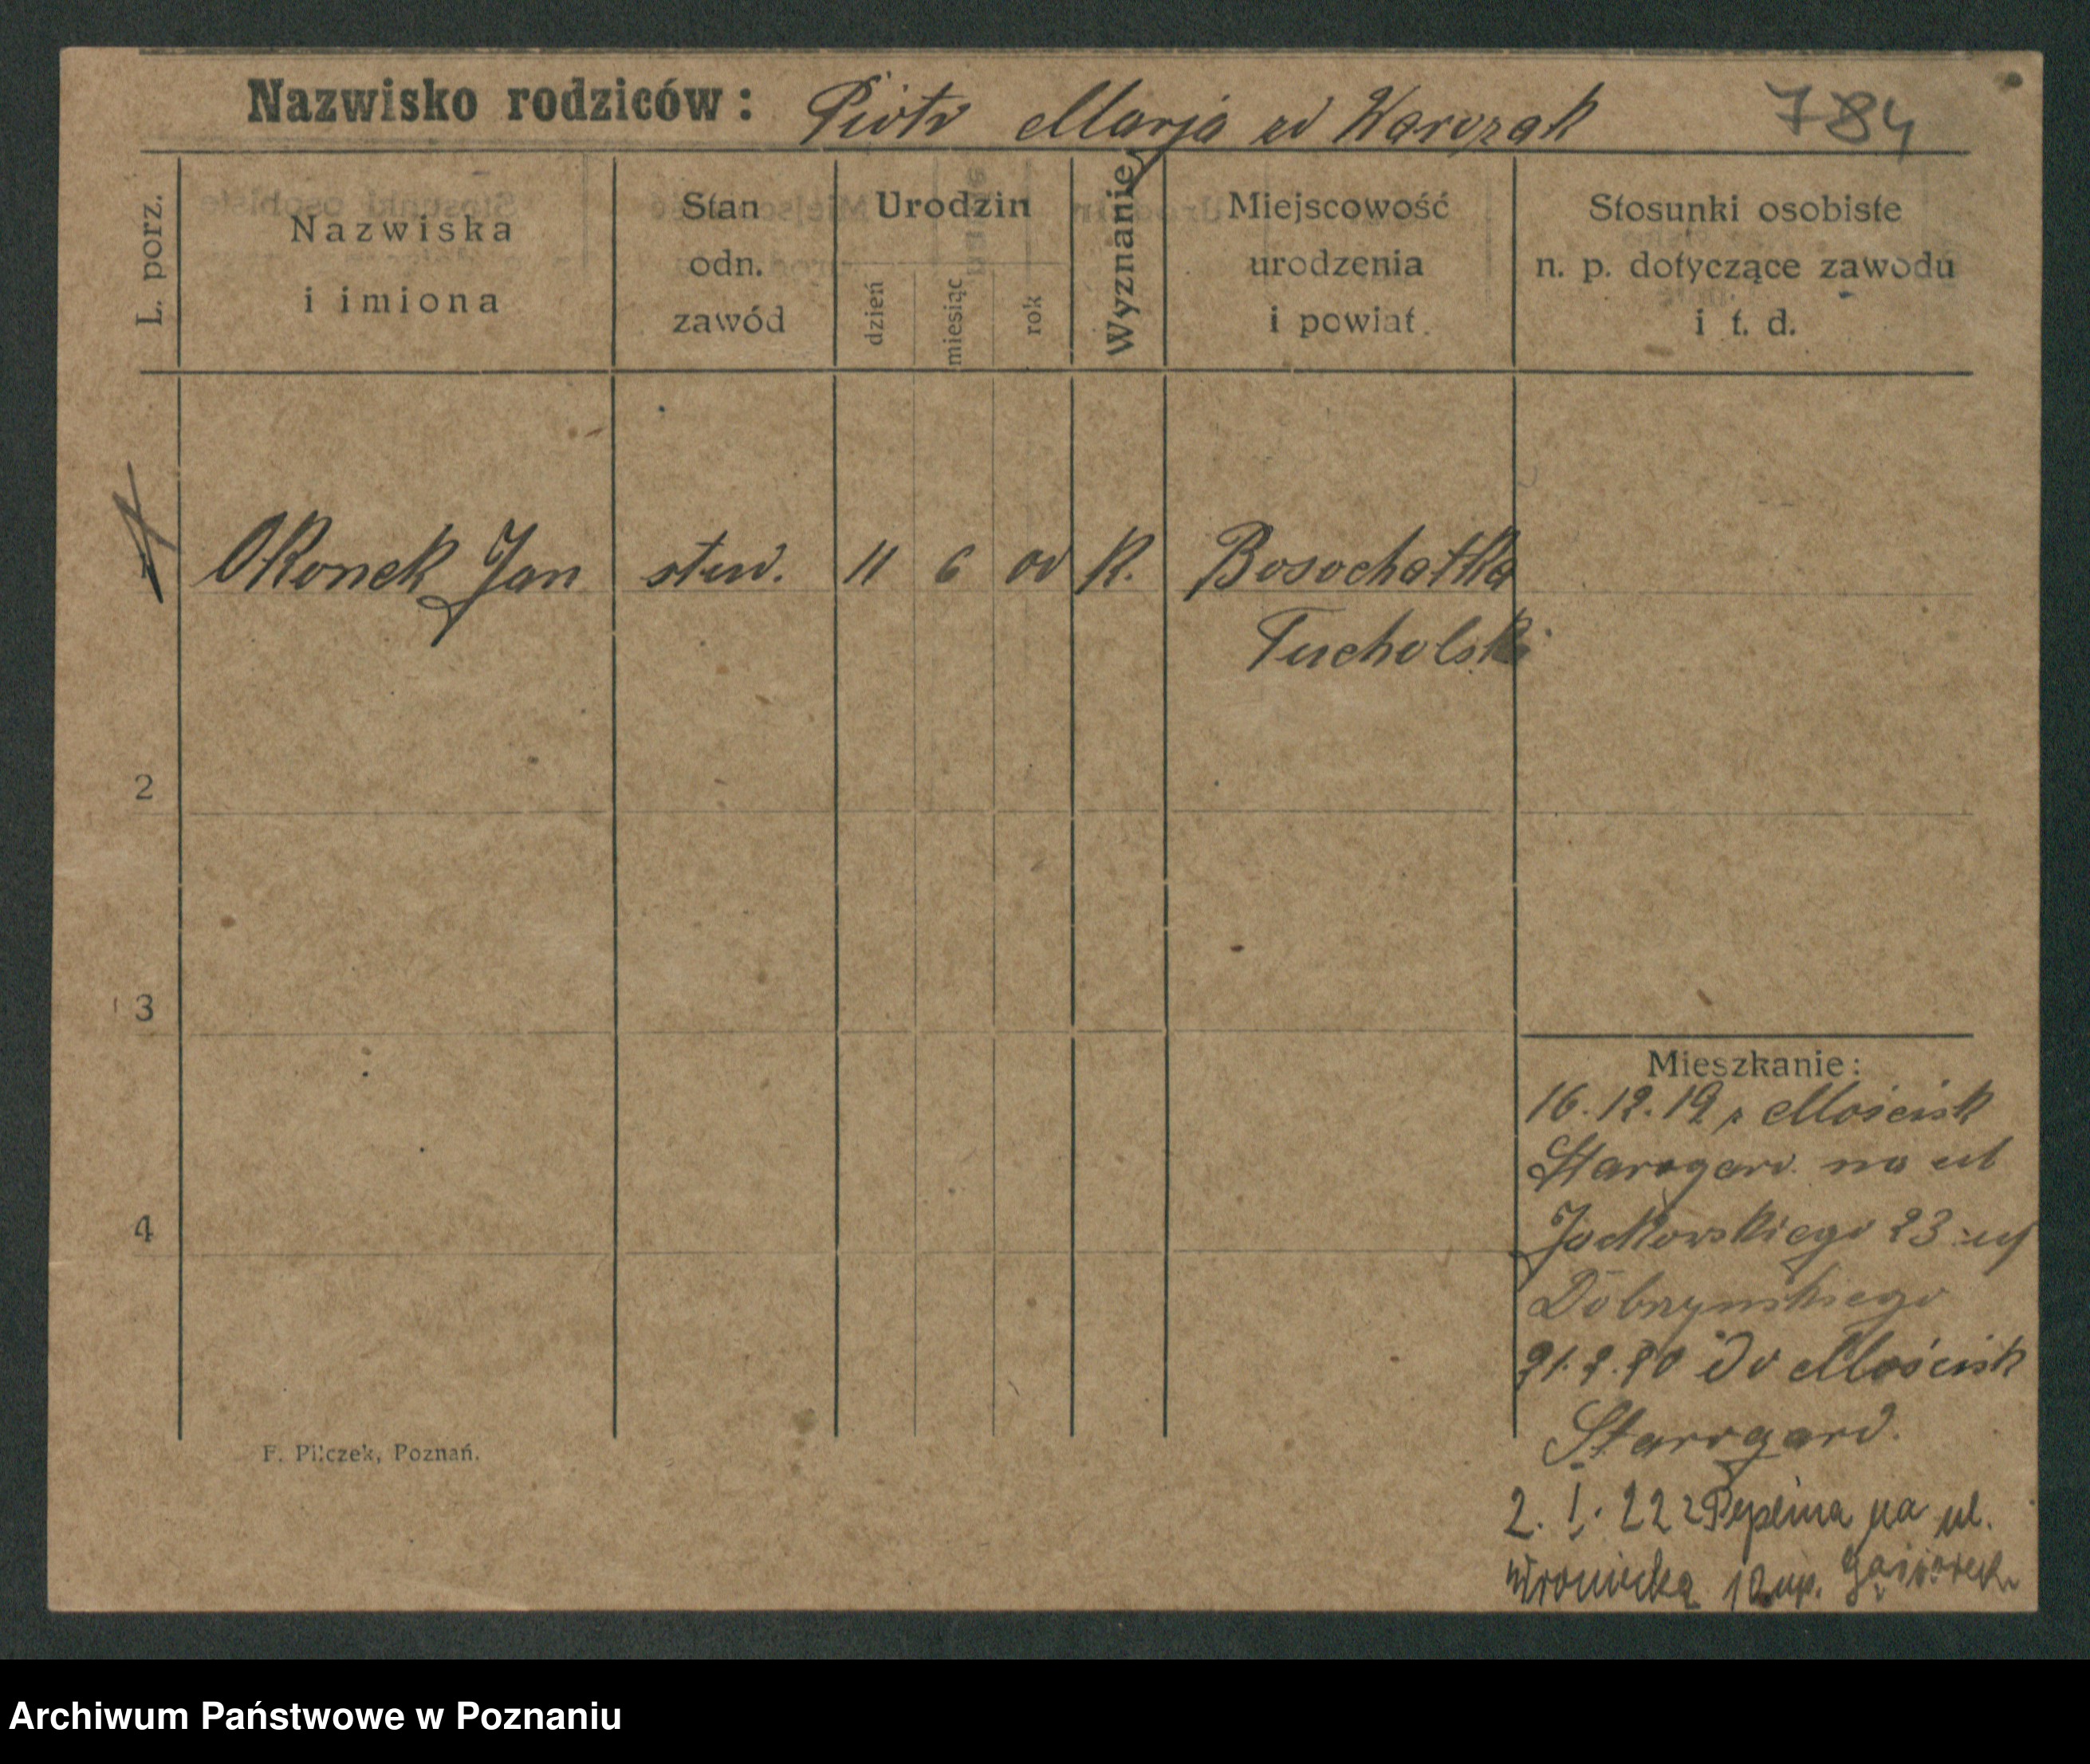 Nazwisko rodziców: Piotr Marja zd Warczak 784
L. porz.
Nazwiska
i imiona
Stan
odn.
zawód
Urodzin
dzień
miesiąc
rok
Wyznanie
Miejscowość
urodzenia
i powiat.
Stosunki osobiste
n. p. dotyczące zawodu
i t. d.
1 Okonek Jan stud. 11 6 00 K. Bosochatka
Tucholski
2
3
4
Mieszkanie:
16.12.19 z Mościsk
Starogard. na ul
Jackowskiego 23 u
Dobrzynskiego
21.2.20 do Mościsk
Starogard.
2. I. 22 z Peplina na ul.
Wroniecka 10 up.
F. Pilczek, Poznań.
Archiwum Państwowe w Poznaniu